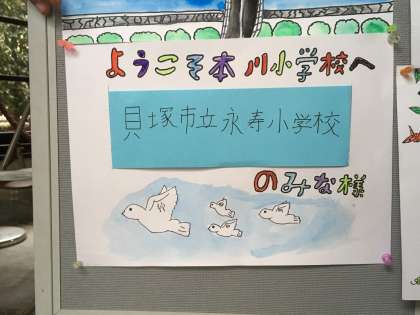 ようこそ本川小学校へ
貝塚市立永寿小学校
のみな様